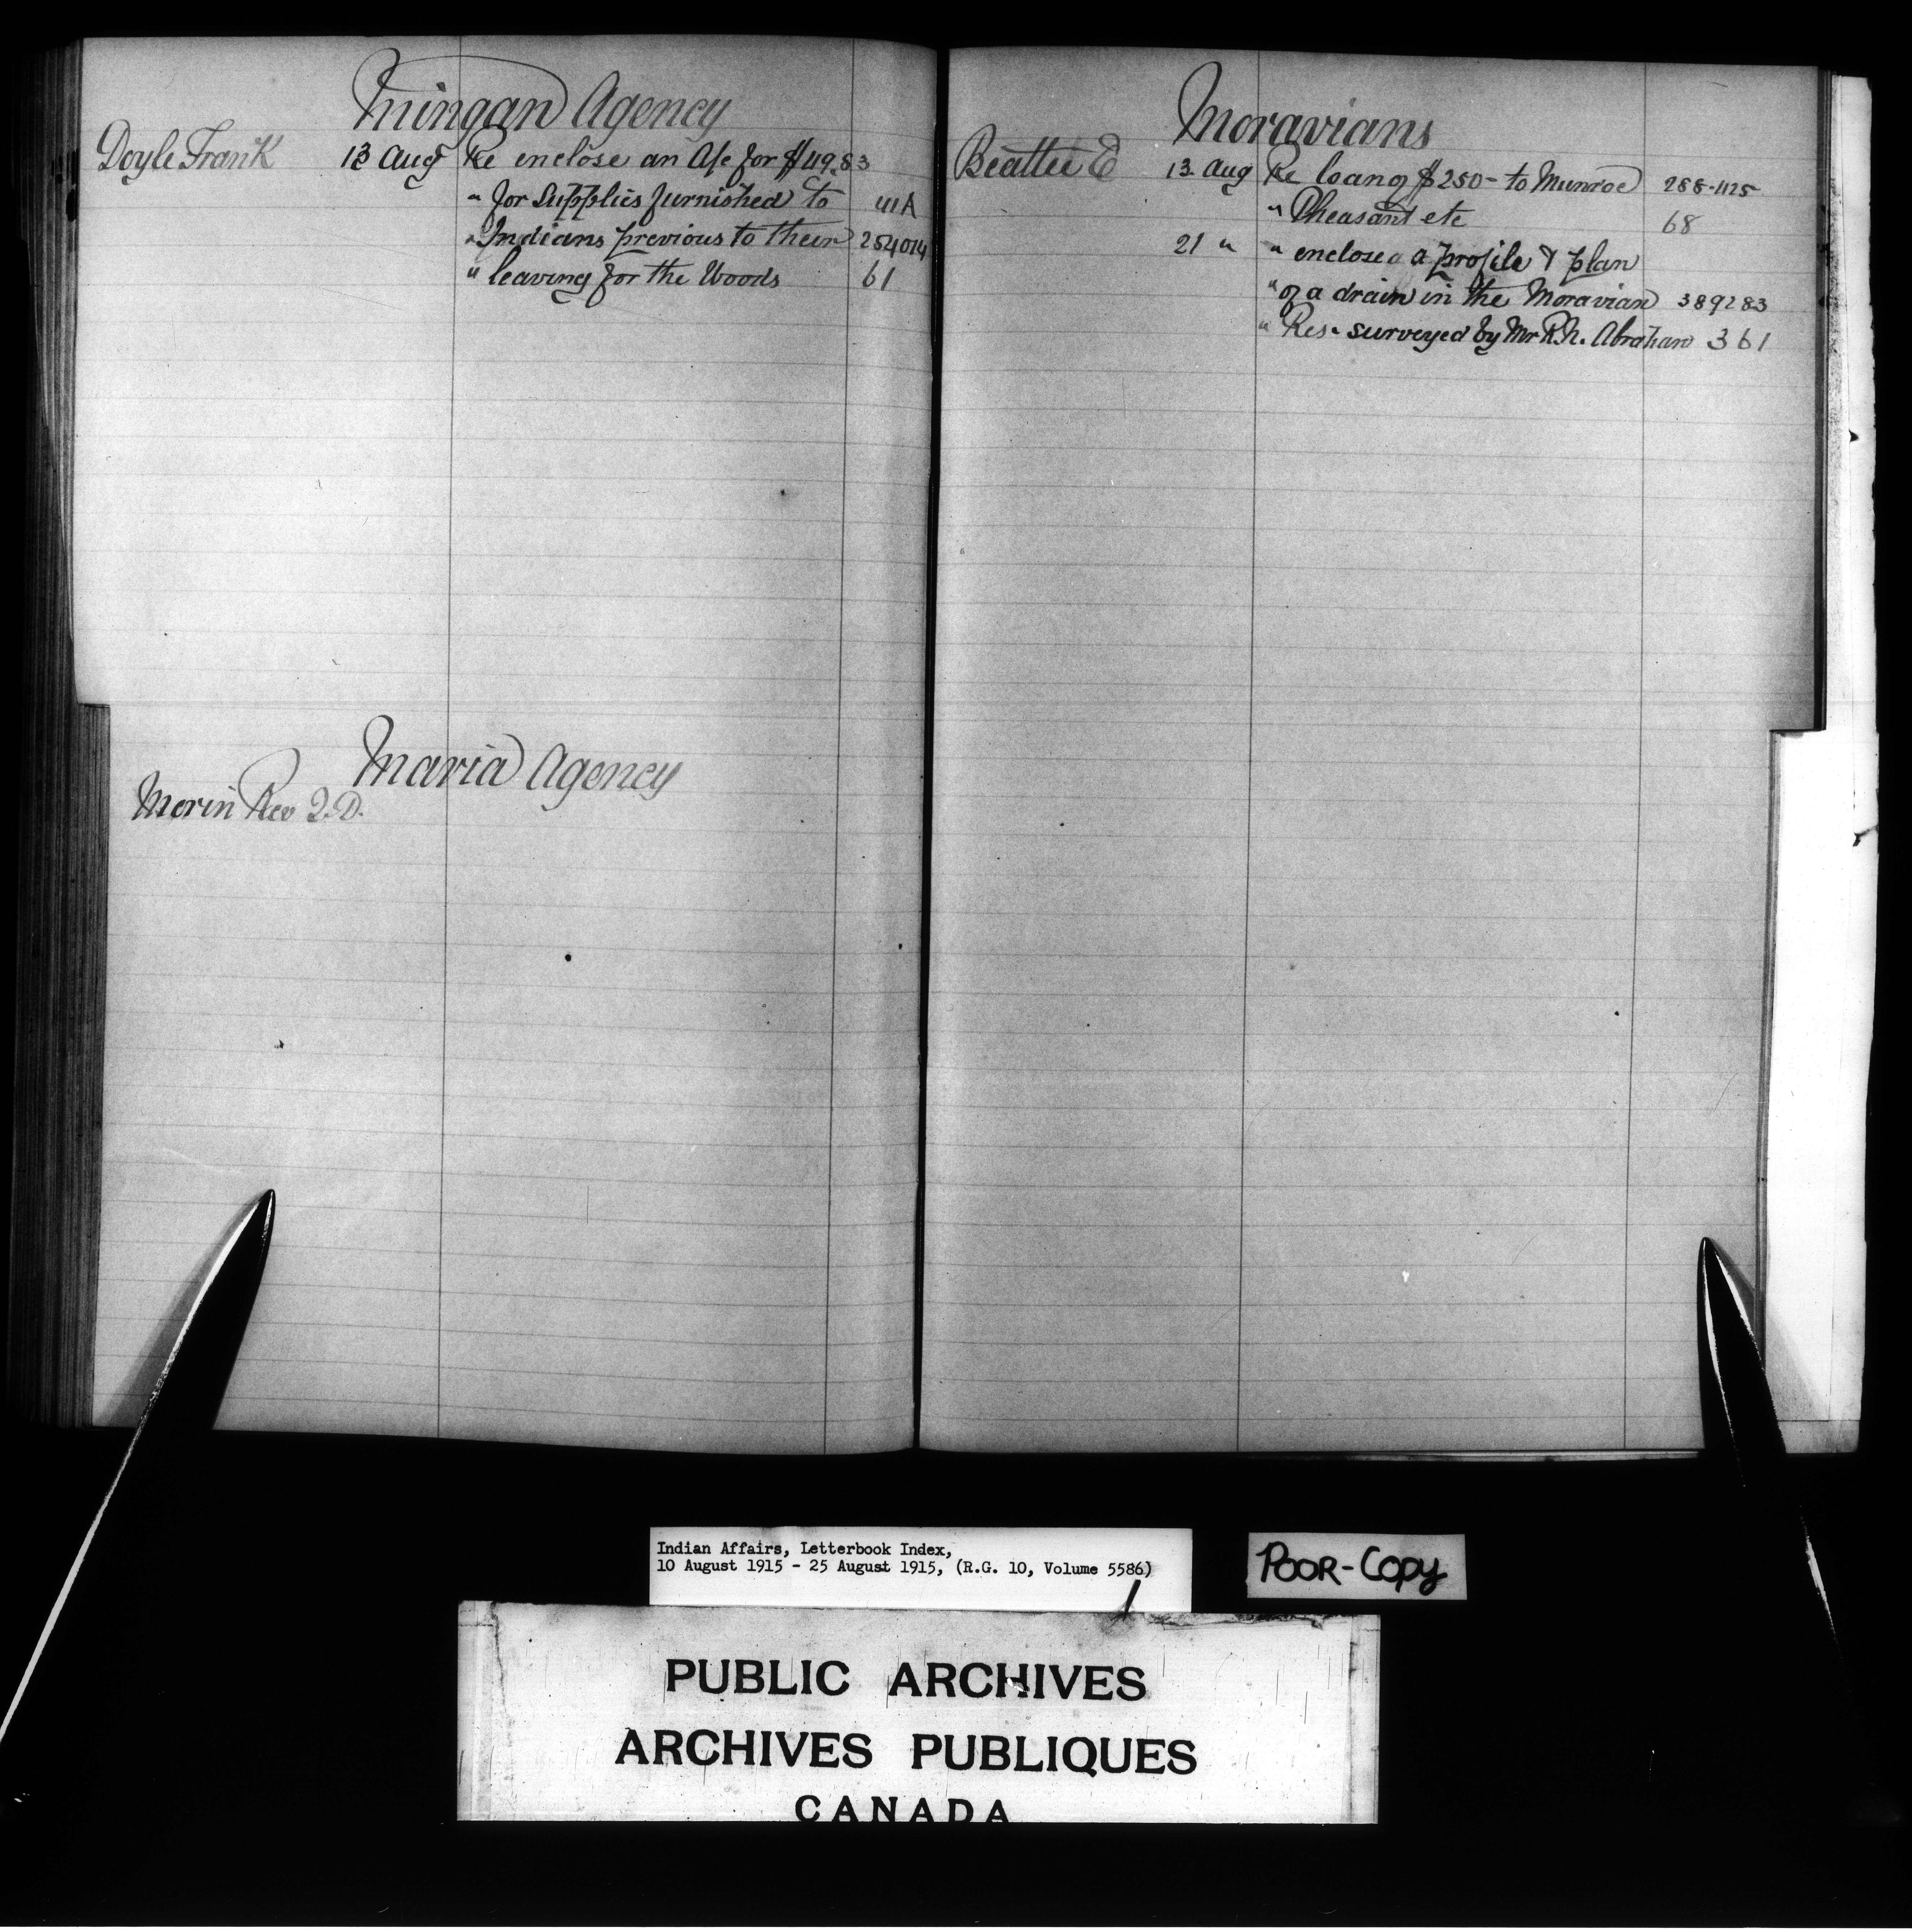 Mingan Agency
Doyle Frank 13 Aug Re enclose an A/c for $49.83
" for Supplies furnished to 41A
" Indians previous to their 254014
" leaving for the Woods 61
Maria Agency
Morin Rev J.D.
Moravians
Beattie E 13 Aug Re loan of $250- to Munroe 288-1125
" Pheasant etc 68
21 " " enclose a profile & plan
" of a drain in the Moravian 389283
" Res- surveyed by Mr R.h. Abraham 361
Indian Affairs, Letterbook Index,
10 August 1915 - 25 August 1915, (R.G. 10, Volume 5586)
POOR-COPY
PUBLIC ARCHIVES
ARCHIVES PUBLIQUES
CANADA